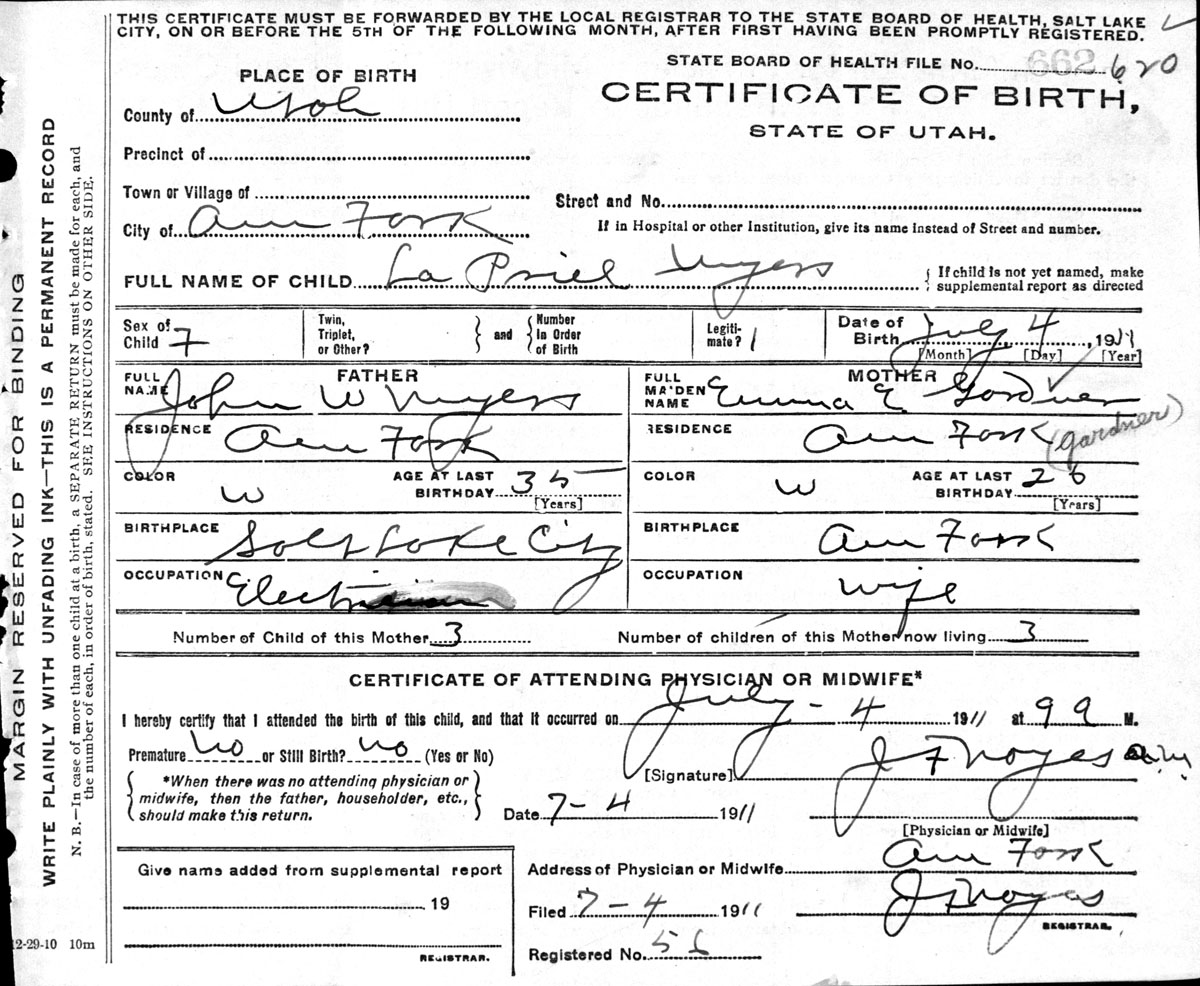 THIS CERTIFICATE MUST BE FORWARDED BY THE LOCAL REGISTRAR TO THE STATE BOARD OF HEALTH, SALT LAKE
CITY, ON OR BEFORE THE 5TH OF THE FOLLOWING MONTH, AFTER FIRST HAVING BEEN PROMPTLY REGISTERED.
STATE BOARD OF HEALTH FILE NO. 620
PLACE OF BIRTH
CERTIFICATE OF BIRTH,
STATE OF UTAH.
County of Utah
Precinct of
Town or Village of
Street and No.
City of Am Fork
If in Hospital or other Institution, give its name instead of Street and number.
FULL NAME OF CHILD La Priel Myers
If child is not yet named, make
supplemental report as directed
Sex of
Child F
Twin,
Triplet,
or Other?
and
Number
in Order
of Birth
Legiti-
mate? 1
Date of
Birth July 4, 1911
[Month] [Day] [Year]
FATHER
FULL
NAME John W Myers
MOTHER
FULL
MAIDEN
NAME Emma E Gardner
(gardner)
RESIDENCE Am Fork
RESIDENCE Am Fork
COLOR W AGE AT LAST
BIRTHDAY 35
[Years]
COLOR W AGE AT LAST
BIRTHDAY 26
[Years]
BIRTHPLACE Salt Lake City
BIRTHPLACE Am Fork
OCCUPATION Electrician
OCCUPATION Wife
Number of Child of this Mother 3
Number of children of this Mother now living 3
CERTIFICATE OF ATTENDING PHYSICIAN OR MIDWIFE*
I hereby certify that I attended the birth of this child, and that it occurred on July - 4 1911 at 9 M.
Premature No or Still Birth? No (Yes or No)
[Signature] J F Noyes
*When there was no attending physician or
midwife, then the father, householder, etc.,
should make this return.
Date 7-4 1911
[Physician or Midwife]
Give name added from supplemental report
19
REGISTRAR.
Address of Physician or Midwife Am Fork
Filed 7-4 1911 J F Noyes
REGISTRAR.
Registered No. 56
12-29-10 10m
MARGIN RESERVED FOR BINDING
WRITE PLAINLY WITH UNFADING INK—THIS IS A PERMANENT RECORD
N. B.—In case of more than one child at a birth, a SEPARATE RETURN must be made for each, and
the number of each, in order of birth, stated. SEE INSTRUCTIONS ON OTHER SIDE.